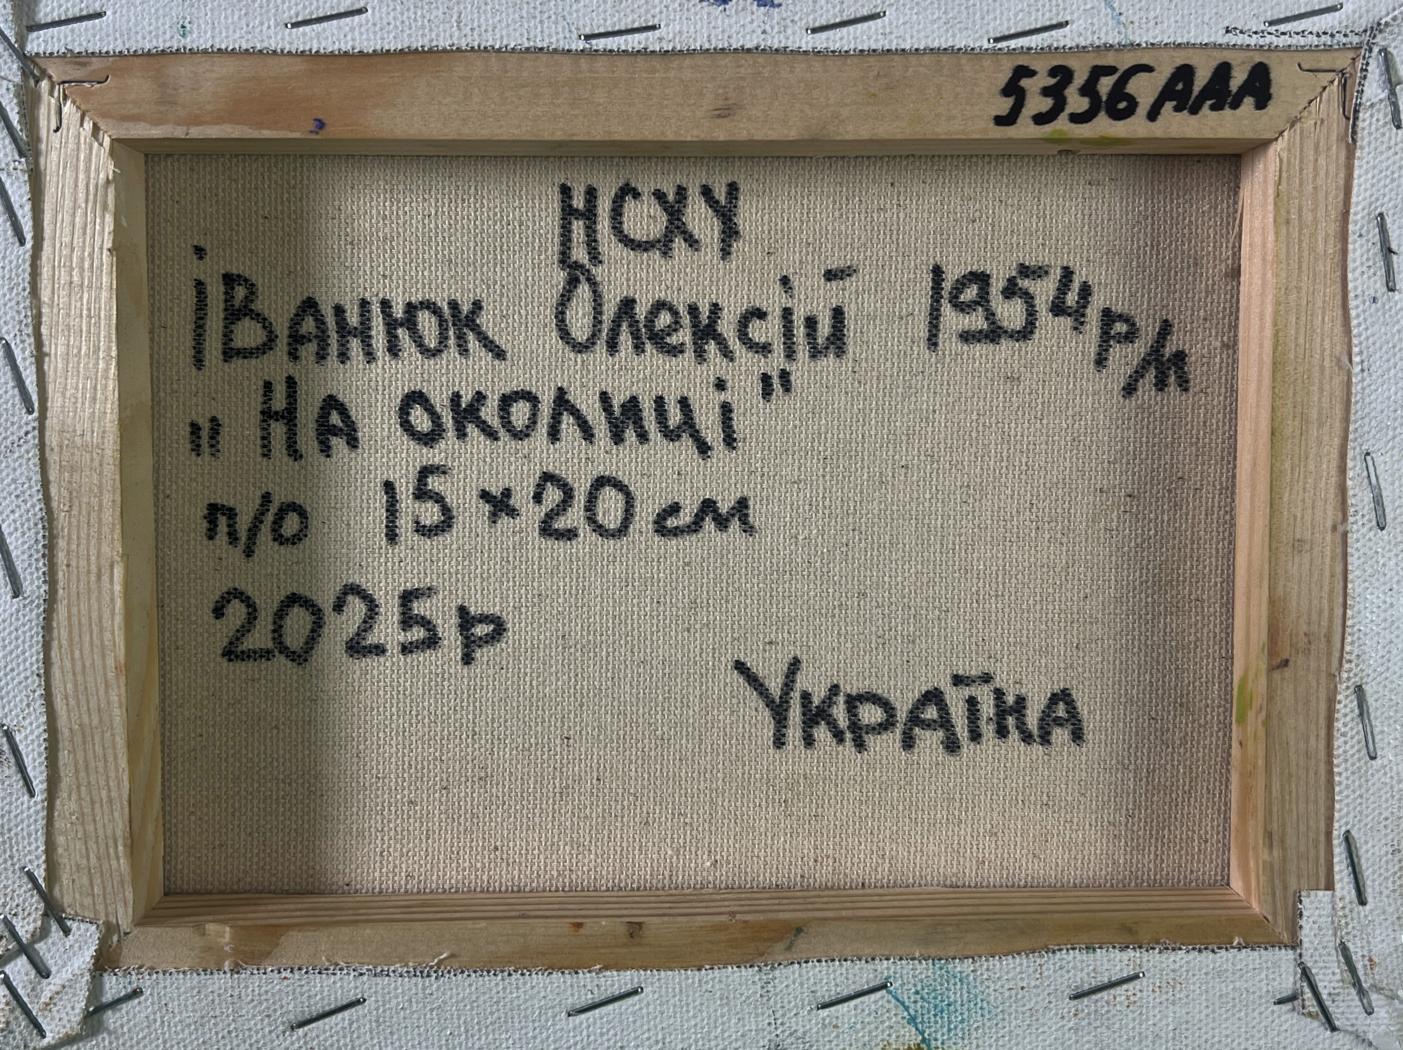 5356AAA
НСХУ
Іванюк Олексій 1954 р/н
„На околиці"
п/о 15×20 см
2025р
Україна